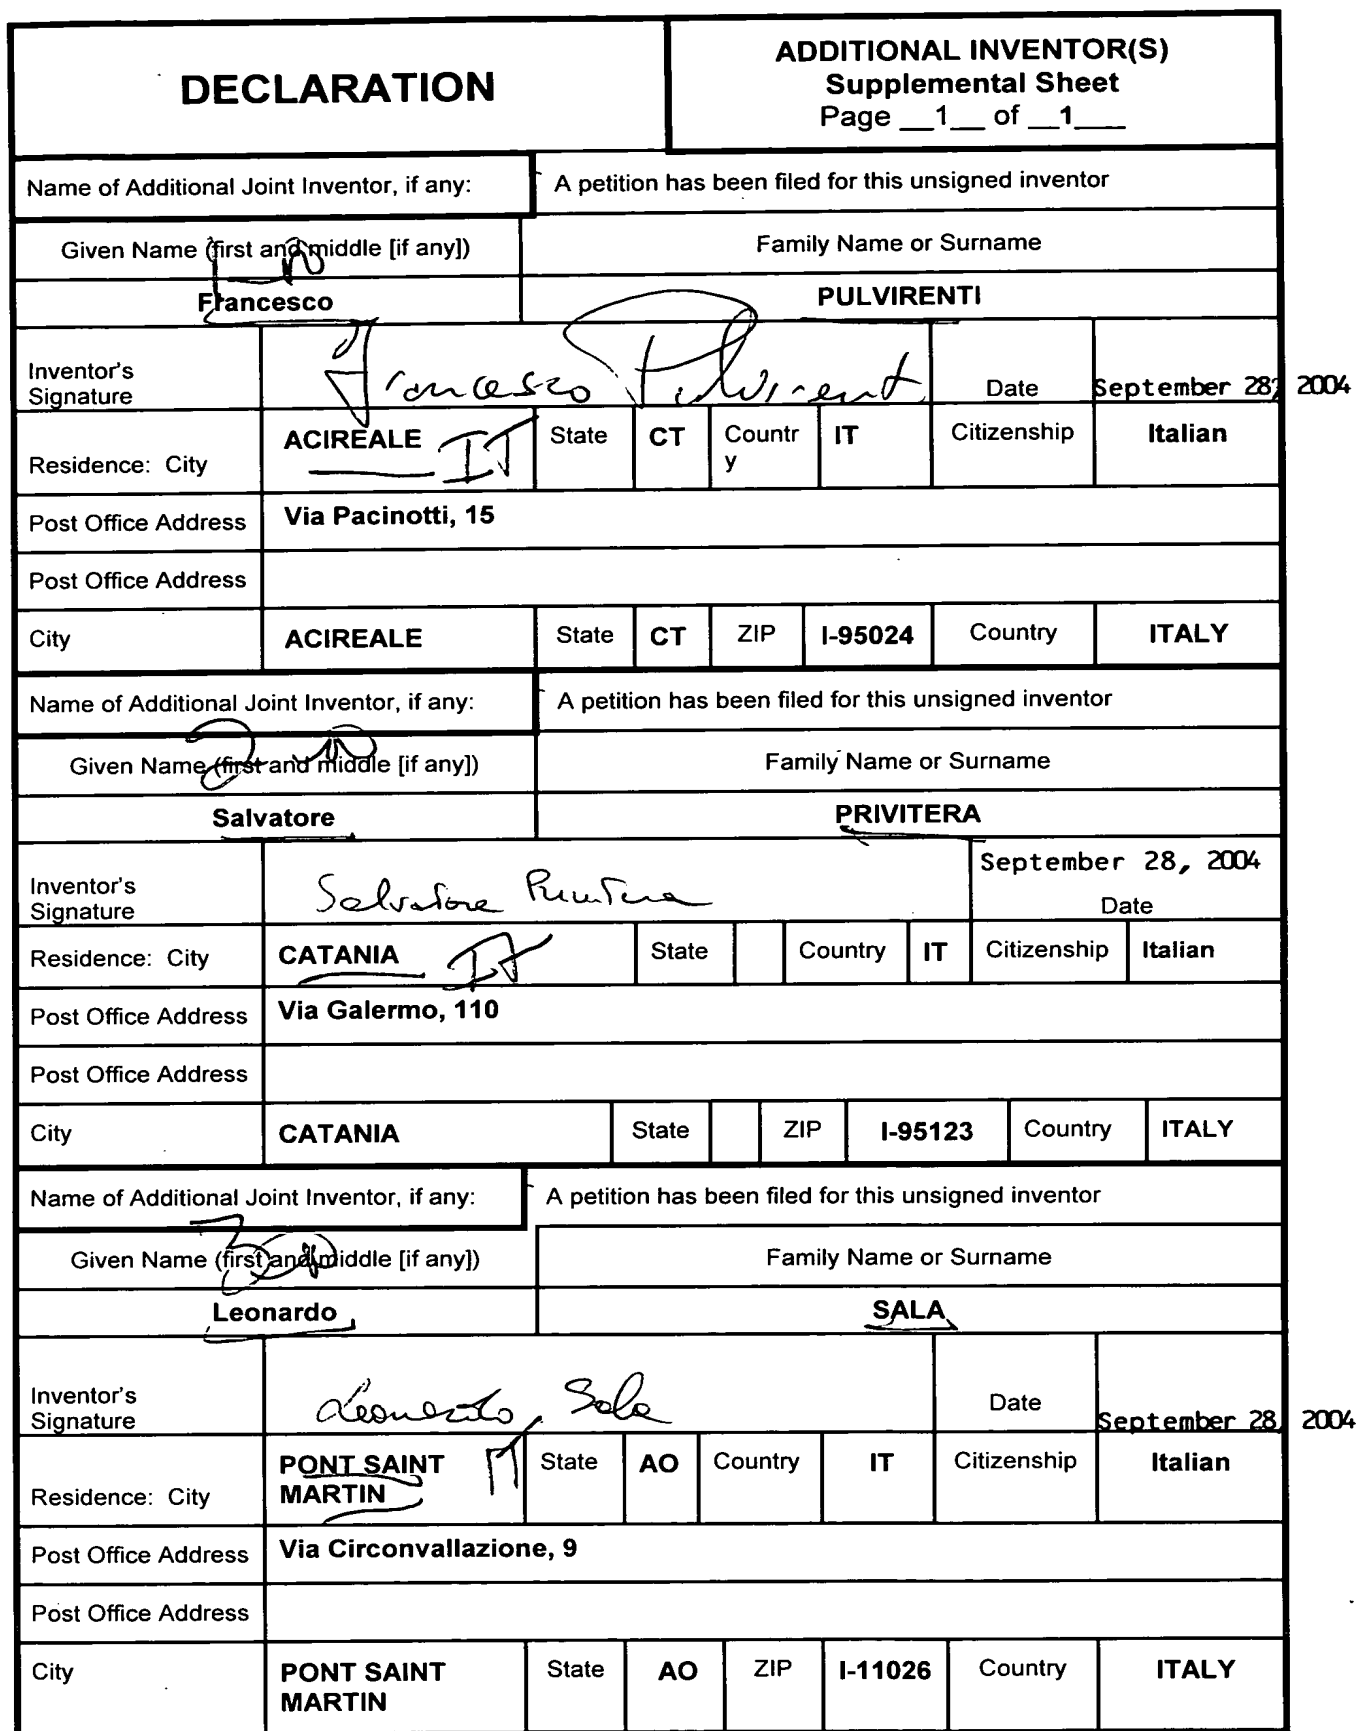 DECLARATION
ADDITIONAL INVENTOR(S)
Supplemental Sheet
Page __1__ of __1____
Name of Additional Joint Inventor, if any:
A petition has been filed for this unsigned inventor
Given Name (first and middle [if any])
Family Name or Surname
Francesco
PULVIRENTI
Inventor's
Signature
Francesco Pulvirenti
Date
September 28, 2004
Residence: City
ACIREALE
IT
State
CT
Countr
y
IT
Citizenship
Italian
Post Office Address
Via Pacinotti, 15
Post Office Address
City
ACIREALE
State
CT
ZIP
I-95024
Country
ITALY
Name of Additional Joint Inventor, if any:
A petition has been filed for this unsigned inventor
Given Name (first and middle [if any])
Family Name or Surname
Salvatore
PRIVITERA
Inventor's
Signature
Salvatore Privitera
September 28, 2004
Date
Residence: City
CATANIA
IT
State
Country
IT
Citizenship
Italian
Post Office Address
Via Galermo, 110
Post Office Address
City
CATANIA
State
ZIP
I-95123
Country
ITALY
Name of Additional Joint Inventor, if any:
A petition has been filed for this unsigned inventor
Given Name (first and middle [if any])
Family Name or Surname
Leonardo
SALA
Inventor's
Signature
Leonardo Sala
Date
September 28, 2004
Residence: City
PONT SAINT
MARTIN
IT
State
AO
Country
IT
Citizenship
Italian
Post Office Address
Via Circonvallazione, 9
Post Office Address
City
PONT SAINT
MARTIN
State
AO
ZIP
I-11026
Country
ITALY